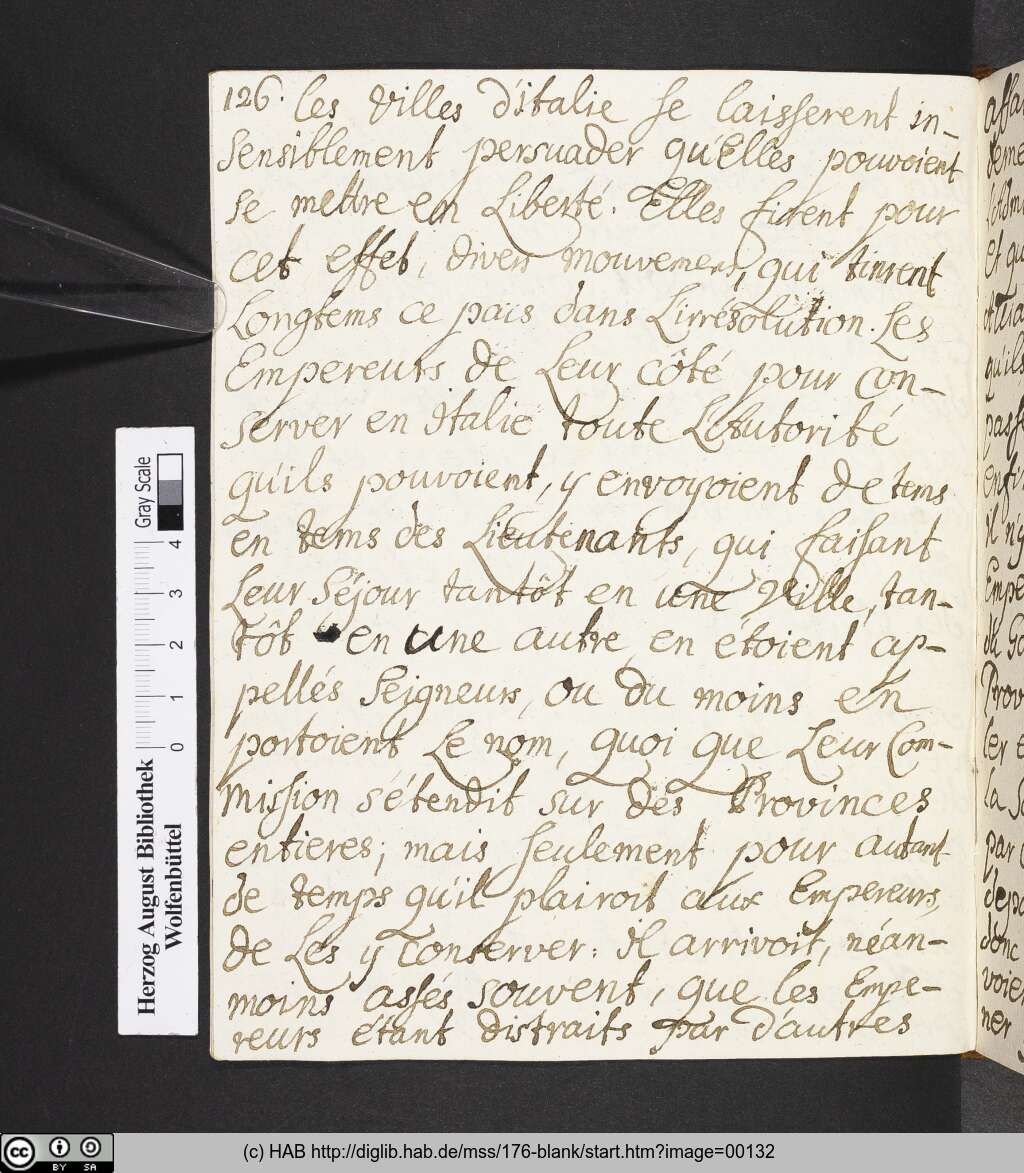 126. les villes d'italie se laisserent in-
sensiblement persuader qu'Elles pouvoient
se mettre en Liberté. Elles firent pour
cet effet, divers mouvemens, qui tinrent
Longtems ce païs dans L'irrésolution. Les
Empereurs de Leur côté pour con-
server en Italie toute L'Autorité
qu'ils pouvoient, y envoyoient de tems
en tems des Lieutenants, qui faisant
Leur Séjour tantôt en une Ville, tan-
tôt en une autre, en étoient ap-
pellés Seigneurs, ou du moins en
portoient Le nom, quoi que Leur Com-
mission s'étendit sur des Provinces
entieres; mais seulement pour autant
de temps qu'il plairoit aux Empereurs,
de Les y Conserver: il arrivoit, néan-
moins assés souvent, que les Empe-
reurs étant distraits par d'autres
Herzog August Bibliothek
Wolfenbüttel
Gray Scale
0 1 2 3 4
cc BY SA
(c) HAB http://diglib.hab.de/mss/176-blank/start.htm?image=00132